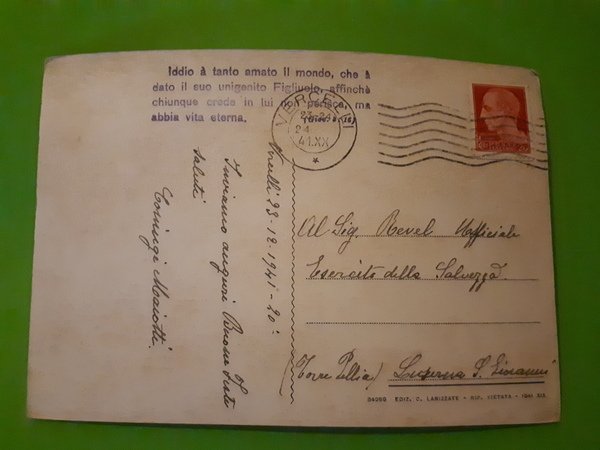 Iddio à tanto amato il mondo, che à
dato il suo unigenito Figliuolo, affinchè
chiunque crede in lui non perisca, ma
abbia vita eterna.
VERCELLI
24
41.XX
Vercelli 23-12-1941-20°
Inviamo auguri Buone Feste
saluti
Coniugi
Al Sig. Revel Ufficiale
Esercito della Salvezza.
(Torre Pellice) Luserna S. Giovanni
84269 EDIZ. C. LANIZZATE - RIP. VIETATA - 1941 XIX